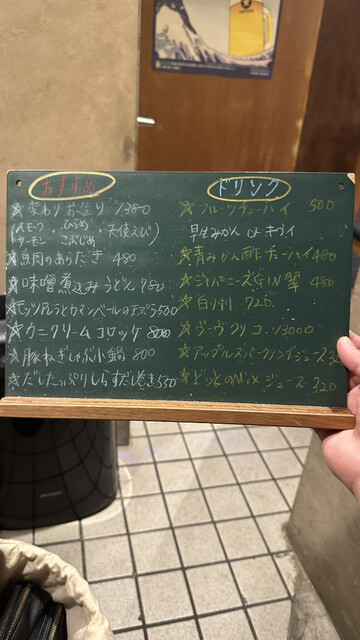 おすすめ
☆変わりお造り 1980
(スモーク サーモン・ひらめ こぶじめ・天使えび)
☆魚肉のあらだき 480
☆味噌煮込みうどん 780
モッツァレラとカマンベールの天ぷら500
☆ウニクリームコロッケ 800
☆豚ねぎしゃぶ小鍋 800
☆だしたっぷりしらすだしまき550
ドリンク
☆フルーツチューハイ 500
早生みかん or キウイ
☆青みかん酢チューハイ480
☆ジャパニーズGIN翠 480
☆白り 720
☆ヴーヴクリコ 13000
☆アップルスパークリングジュース
☆ジュース 320